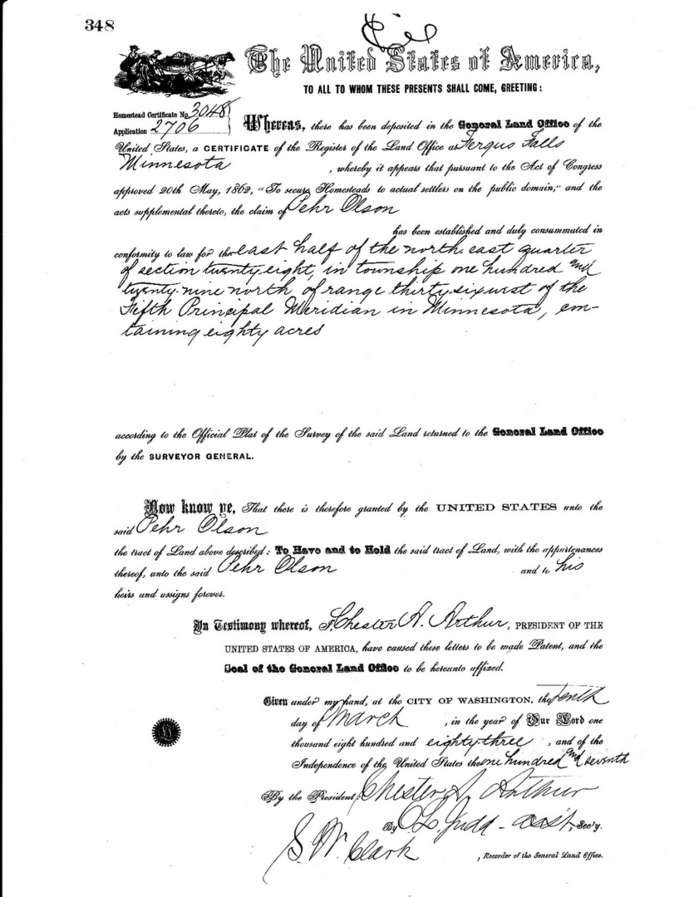 348
The United States of America,
TO ALL TO WHOM THESE PRESENTS SHALL COME, GREETING:
Homestead Certificate No. 3048
Application 2706
Whereas, there has been deposited in the General Land Office of the
United States, a CERTIFICATE of the Register of the Land Office at Fergus Falls
Minnesota , whereby it appears that pursuant to the Act of Congress
approved 20th May, 1862, "To secure Homesteads to actual settlers on the public domain," and the
acts supplemental thereto, the claim of Pehr Olson
has been established and duly consummated in
conformity to law for the east half of the north east quarter
of section twenty eight, in township one hundred and
twenty nine north of range thirty six west of the
Fifth Principal Meridian in Minnesota, con-
taining eighty acres
according to the Official Plat of the Survey of the said Land returned to the General Land Office
by the SURVEYOR GENERAL.
Now know ye, That there is therefore granted by the UNITED STATES unto the
said Pehr Olson
the tract of Land above described: To Have and to Hold the said tract of Land, with the appurtenances
thereof, unto the said Pehr Olson and to his
heirs and assigns forever.
In Testimony whereof, I, Chester A. Arthur, PRESIDENT OF THE
UNITED STATES OF AMERICA, have caused these letters to be made Patent, and the
Seal of the General Land Office to be hereunto affixed.
Given under my hand, at the CITY OF WASHINGTON, the tenth
day of March , in the year of Our Lord one
thousand eight hundred and eighty three , and of the
Independence of the United States the one hundred and seventh
By the President: Chester A. Arthur
By O L Judd - Asst, Sec'y.
S. W. Clark , Recorder of the General Land Office.